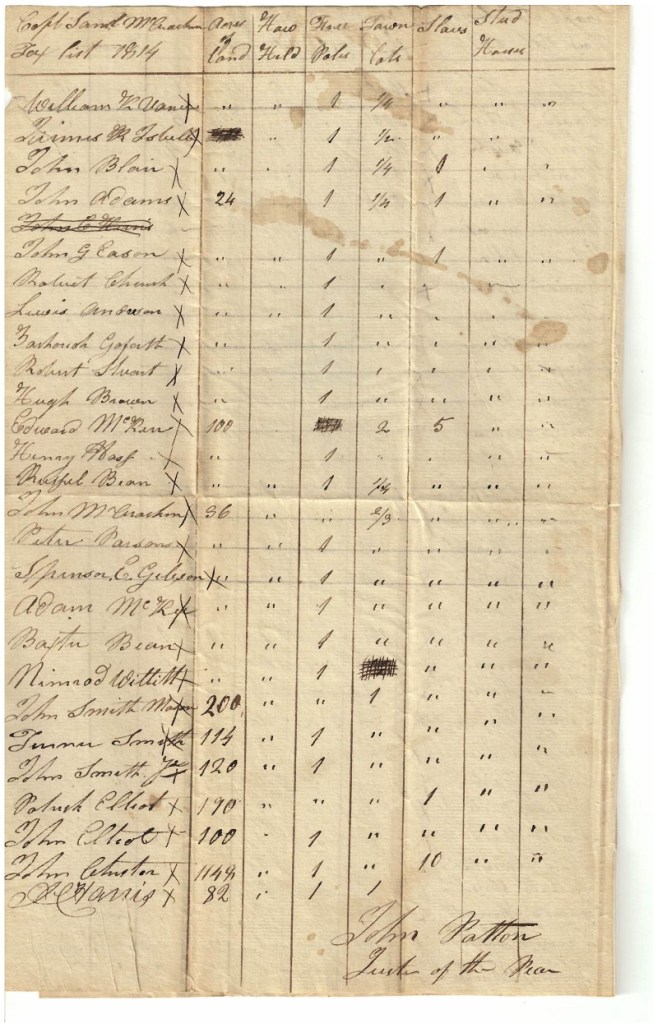 Capt Saml McCrackin Acres of Land How Held Free Poles Town Lots Slaves Stud Horses
Tax list 1814
William K Vance X " " 1 1/4 " " "
X 1 1/2 " " "
John Blair X " " 1 1/4 1 " "
John Adams X 24 1 1/4 1 " "
John C Harris
John G Eason X " " 1 " 1 " "
Robert Church X " " 1 " " "
Lewis Anderson X " " 1 " " " "
Goforth X " 1 " " " "
Robert Stuart X " 1 " " " "
Hugh Brown X " 1 " " " "
Edward McKee X 100 2 5 " "
Henry X " 1 " " " "
Russel Bean X " " 1 " " "
John McCrackin X 36 " " 2/3 " " "
Peter Parsons X " " 1 " " " "
Spinsor E Gibson X " " 1 " " " "
Adam McKee X " " 1 " " " "
Baxter Bean X " " 1 " " " "
Nimrod Willitt X " " 1 " " "
John Smith Mason X 200 " " 1 " " "
Turner Smith X 114 " 1 " " " "
John Smith Jr X 120 " 1 " " " "
Patrick Elliot X 190 " " " 1 " "
John Elliot X 100 " 1 " " " "
John X 1149 " 1 " 10 " "
A C Harris X 82 " 1 1
John Patton
Justice of the Peace